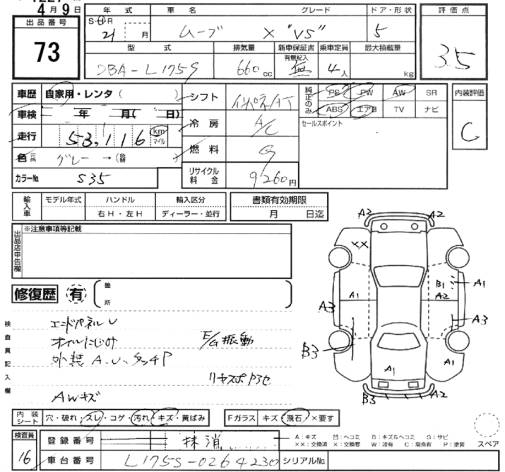 4月9日
出品番号
73
年式 車名 グレード ドア・形状 評価点
S・H R 21 年 月 ムーブ X "VS" 5 3.5
型式 排気量 新車保証書 有無記入 乗車定員 最大積載量
DBA-L175S 660cc 無 4人 kg
車歴 自家用・レンタ( )
シフト インパネAT
純正のみ PS PW AW SR
ABS エアB TV ナビ
内装評価
C
車検 年 月( 日)
冷房 A/C
セールスポイント
走行 58,116 km マイル
燃料 G
色 グレー→
カラーNo S35
リサイクル料金 9,260円
輸入車 モデル年式 ハンドル 輸入区分 書類有効期限
右H・左H ディーラー・並行 月 日迄
出品店申告欄 ※注意事項等記載
修復歴 有 箇所
検査員記入欄
エンドパネルU
オイルにじみ E/G振動
外装A.U.タッチP
AWキズ
A3 A2
XX
B1 A1
A3 A1 A3
B3
A1 A1
B3 A2
スペア
内装シート 穴・破れ・スレ・コゲ・汚れ・キズ・黄ばみ
Fガラス キズ・飛石・×要す
検査員
16
登録番号 抹消
車台番号 L175S-0264230 シリアルNo
A:キズ U:ヘコミ B:キズ&ヘコミ S:サビ
XX:交換済 X:要交換 W:波有 C:腐食有 P:塗装